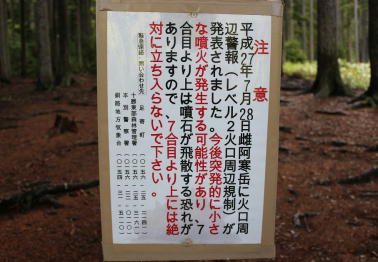 注意
平成27年7月28日雌阿寒岳に火口周
辺警報（レベル2火口周辺規制）が
発表されました。今後突発的に小さ
な噴火が発生する可能性があり、7
合目より上は噴石が飛散する恐れが
ありますので、7合目より上には絶
対に立ち入らないで下さい。
緊急連絡・問い合わせ先
足寄町
十勝東部森林管理署
本別警察署
釧路地方気象台